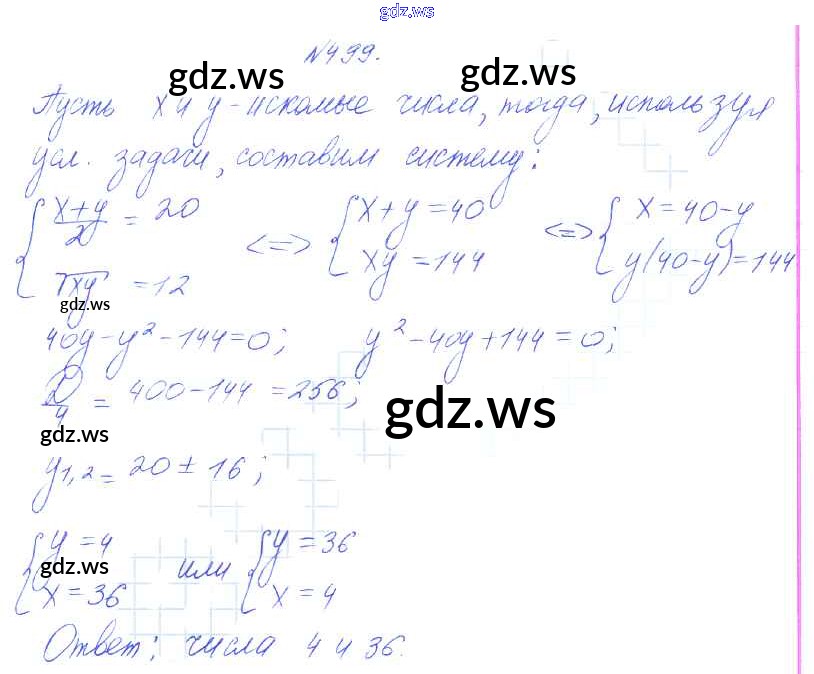 gdz.ws
№499.
gdz.ws gdz.ws
Пусть x и y - искомые числа, тогда, используя
усл. задачи, составим систему:
{ (x+y)/2 = 20 <=> { x+y=40 <=> { x=40-y
√xy = 12 xy = 144 y(40-y)=144
gdz.ws
40y-y²-144=0; y²-40y+144=0;
D/4 = 400-144=256;
gdz.ws
gdz.ws
y1,2 = 20 ± 16;
{ y=4 или { y=36
gdz.ws
x=36 x=4
Ответ: числа 4 и 36.